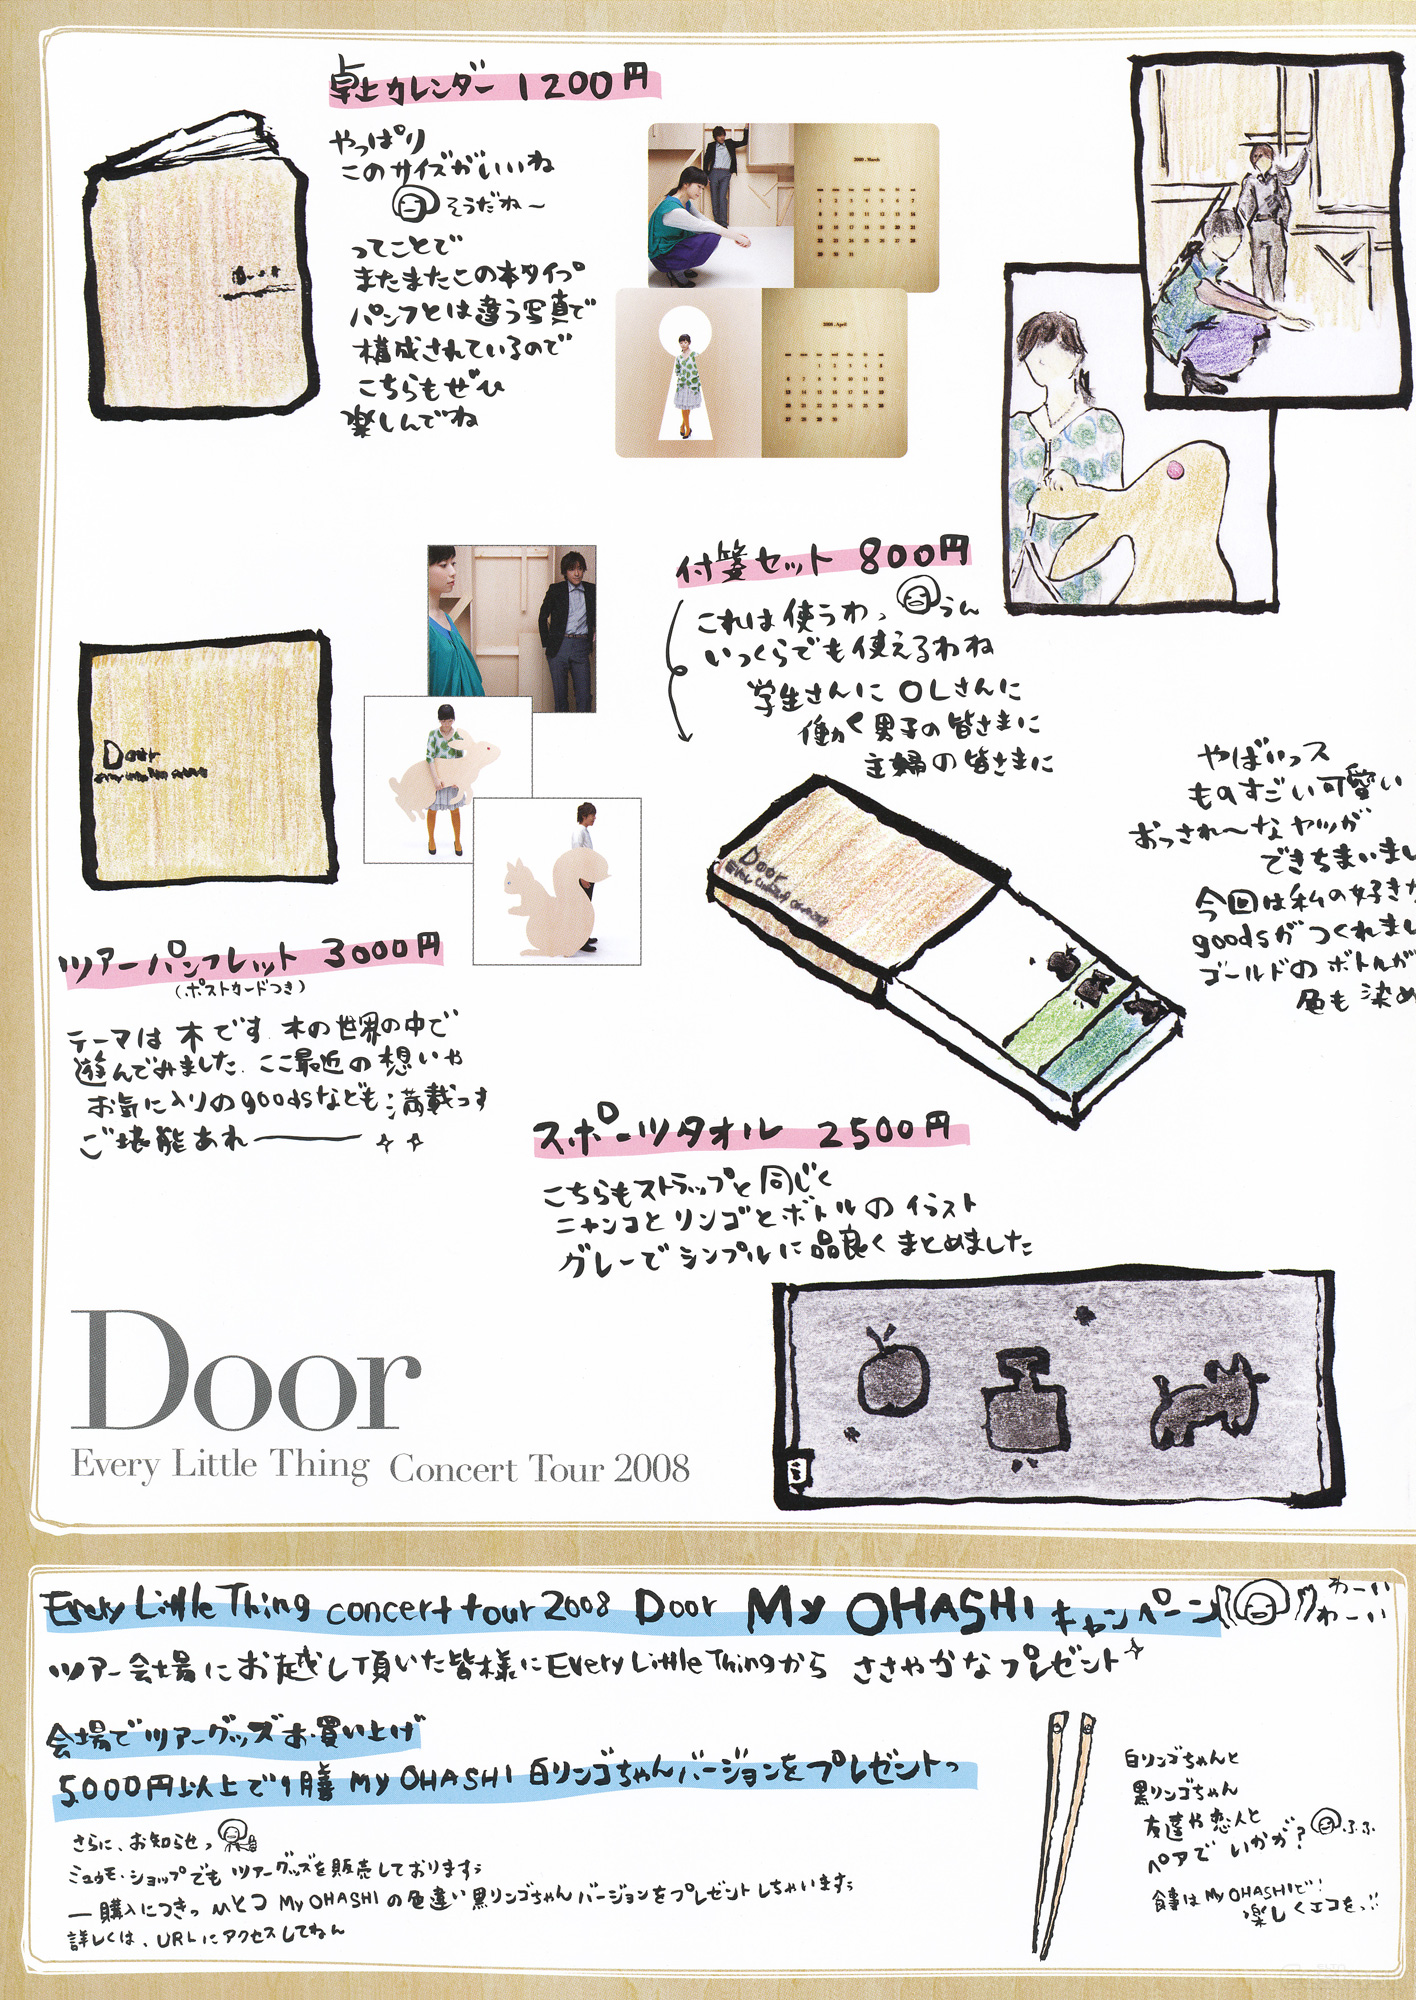 卓上カレンダー 1200円
やっぱり
このサイズがいいね
そうだね〜
ってことで
またまたこの本タイプ
パンフとは違う写真で
構成されているので
こちらもぜひ
楽しんでね
2008. March
2008. April
付箋セット 800円
これは使うわっ うん
いっくらでも使えるわね
学生さんにOLさんに
働く男子の皆さまに
主婦の皆さまに
Door
Door
ツアーパンフレット 3000円
(ポストカードつき)
テーマは木です。木の世界の中で
遊んでみました。ここ最近の想いや
お気に入りのgoodsなども満載っす
ご堪能あれ――
やばいっス
ものすごい可愛い
おっされ〜なヤツが
できちまいまし
今回は私の好きな
goodsがつくれまし
ゴールドのボトルが
色も染め
スポーツタオル 2500円
こちらもストラップと同じく
ニャンコとリンゴとボトルのイラスト
グレーでシンプルに品良くまとめました
Door
Every Little Thing Concert Tour 2008
Every Little Thing concert tour 2008 Door My OHASHI キャンペーン わーい わーい
ツアー会場にお越し頂いた皆様にEvery Little Thingから ささやかなプレゼント
会場でツアーグッズお買い上げ
5,000円以上で1膳 My OHASHI 白リンゴちゃんバージョンをプレゼントっ
さらに、お知らせっ
ミュゥモ・ショップでもツアーグッズを販売しておりますぅ
一購入につきっ ひとつ My OHASHIの色違い黒リンゴちゃんバージョンをプレゼントしちゃいますぅ
詳しくは、URLにアクセスしてねん
白リンゴちゃんと
黒リンゴちゃん
友達や恋人と
ペアでいかが? ふふ
食事はMy OHASHIで!
楽しくエコをっ!!